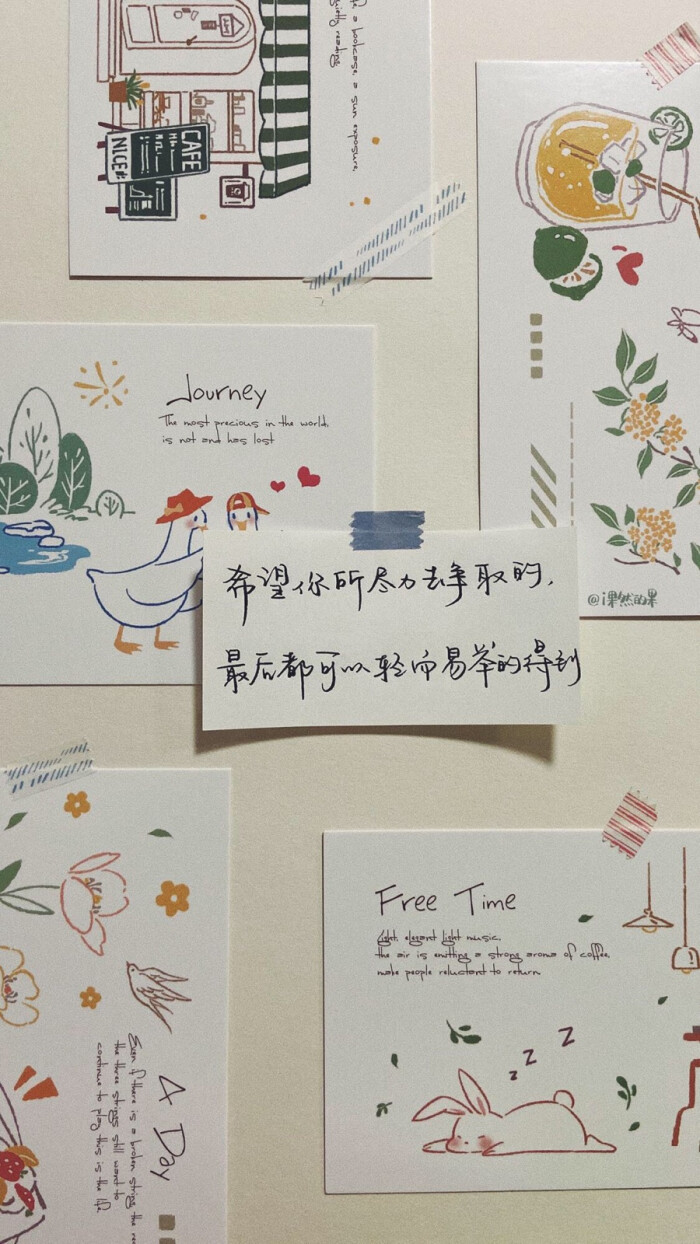 CAFE
NICE
a bookcase, a sun exposure,
reading
Journey
The most precious in the world,
is not and has lost
希望你所尽力去争取的,
最后都可以轻而易举的得到
@i果然的果
Free Time
Light, elegant light music,
the air is emitting a strong aroma of coffee,
make people reluctant to return
z z z
A Day
Even if there is a broken string, the
the three strings still want to
continue to play, this is the life.